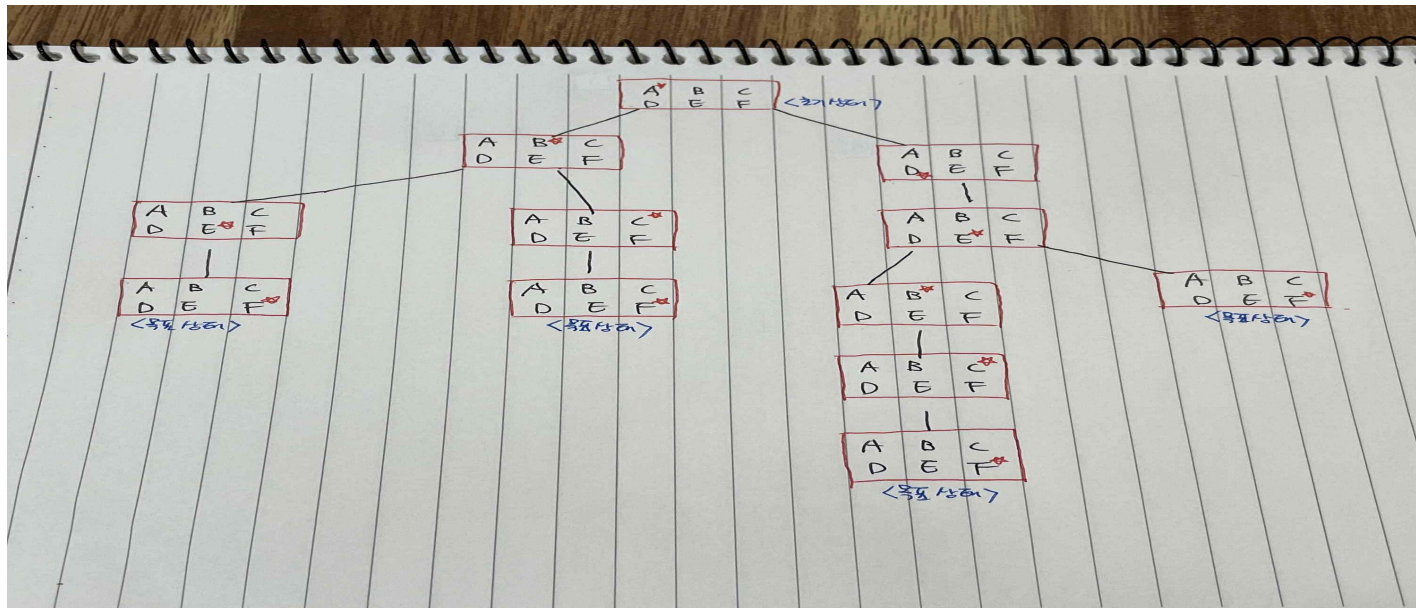 A☆ B C
D E F
<초기상태>
A B☆ C
D E F
A B C
D☆ E F
A B C
D E☆ F
A B C☆
D E F
A B C
D E☆ F
A B C
D E F☆
<목표상태>
A B C
D E F☆
<목표상태>
A B☆ C
D E F
A B C
D E F☆
<목표상태>
A B C☆
D E F
A B C
D E F☆
<목표상태>